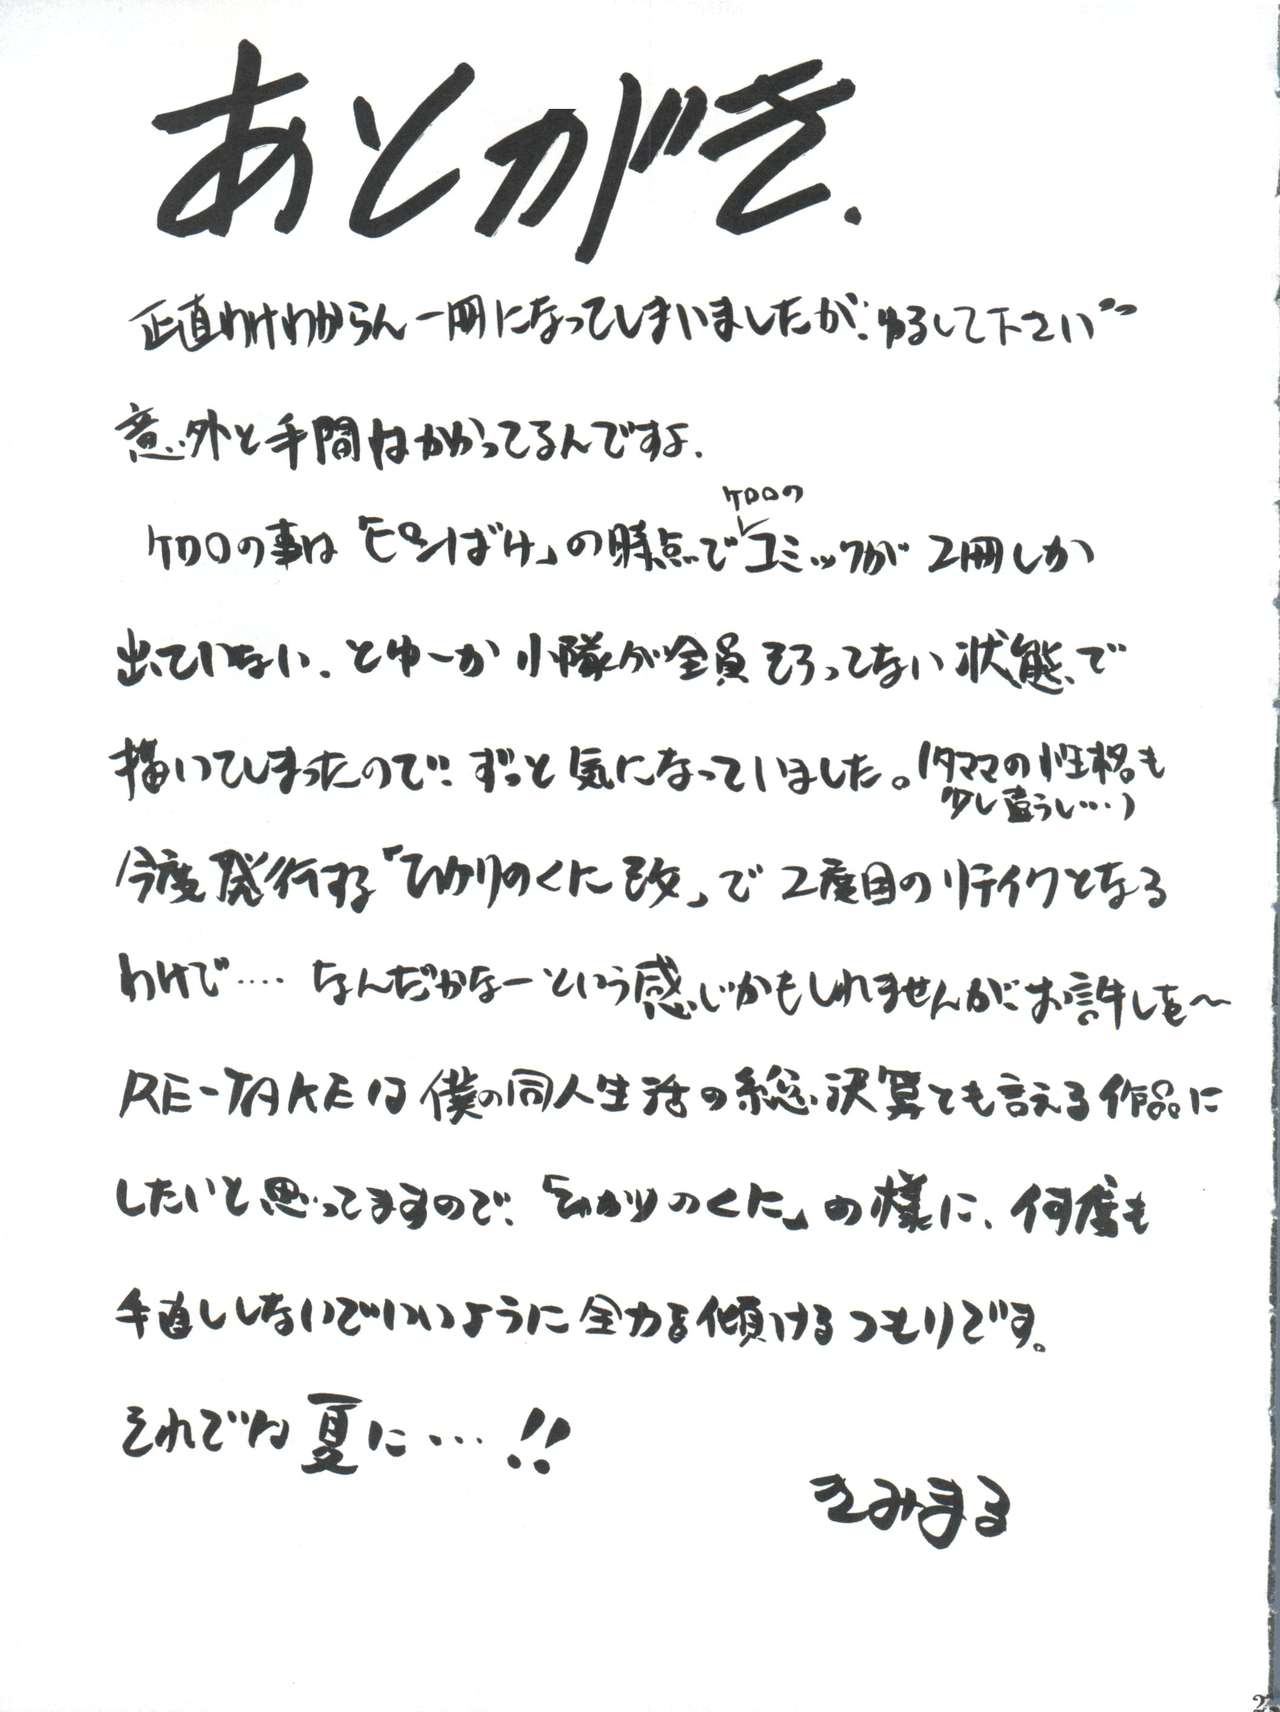 あとがき.
正直わけわからん一冊になってしまいましたが、ゆるして下さい゛
意外と手間はかかってるんですよ.
ケロロの事は「ピンばけ」の時点でケロロのコミックが2冊しか
出ていない.とゆーか小隊が全員そろってない状態で
描いてしまったので、ずっと気になっていました。(タママの性格も
少し違うし…)
今度発行する「ひかりのくに改」で2度目のリテイクとなる
わけで‥‥なんだかなーという感じかもしれませんがお許しを〜
RE-TAKEは僕の同人生活の総決算とも言える作品に
したいと思ってますので、「ひかりのくに」の様に、何度も
手直ししないでいいように全力を傾けるつもりです。
それでは夏に…!!
きみまる
2